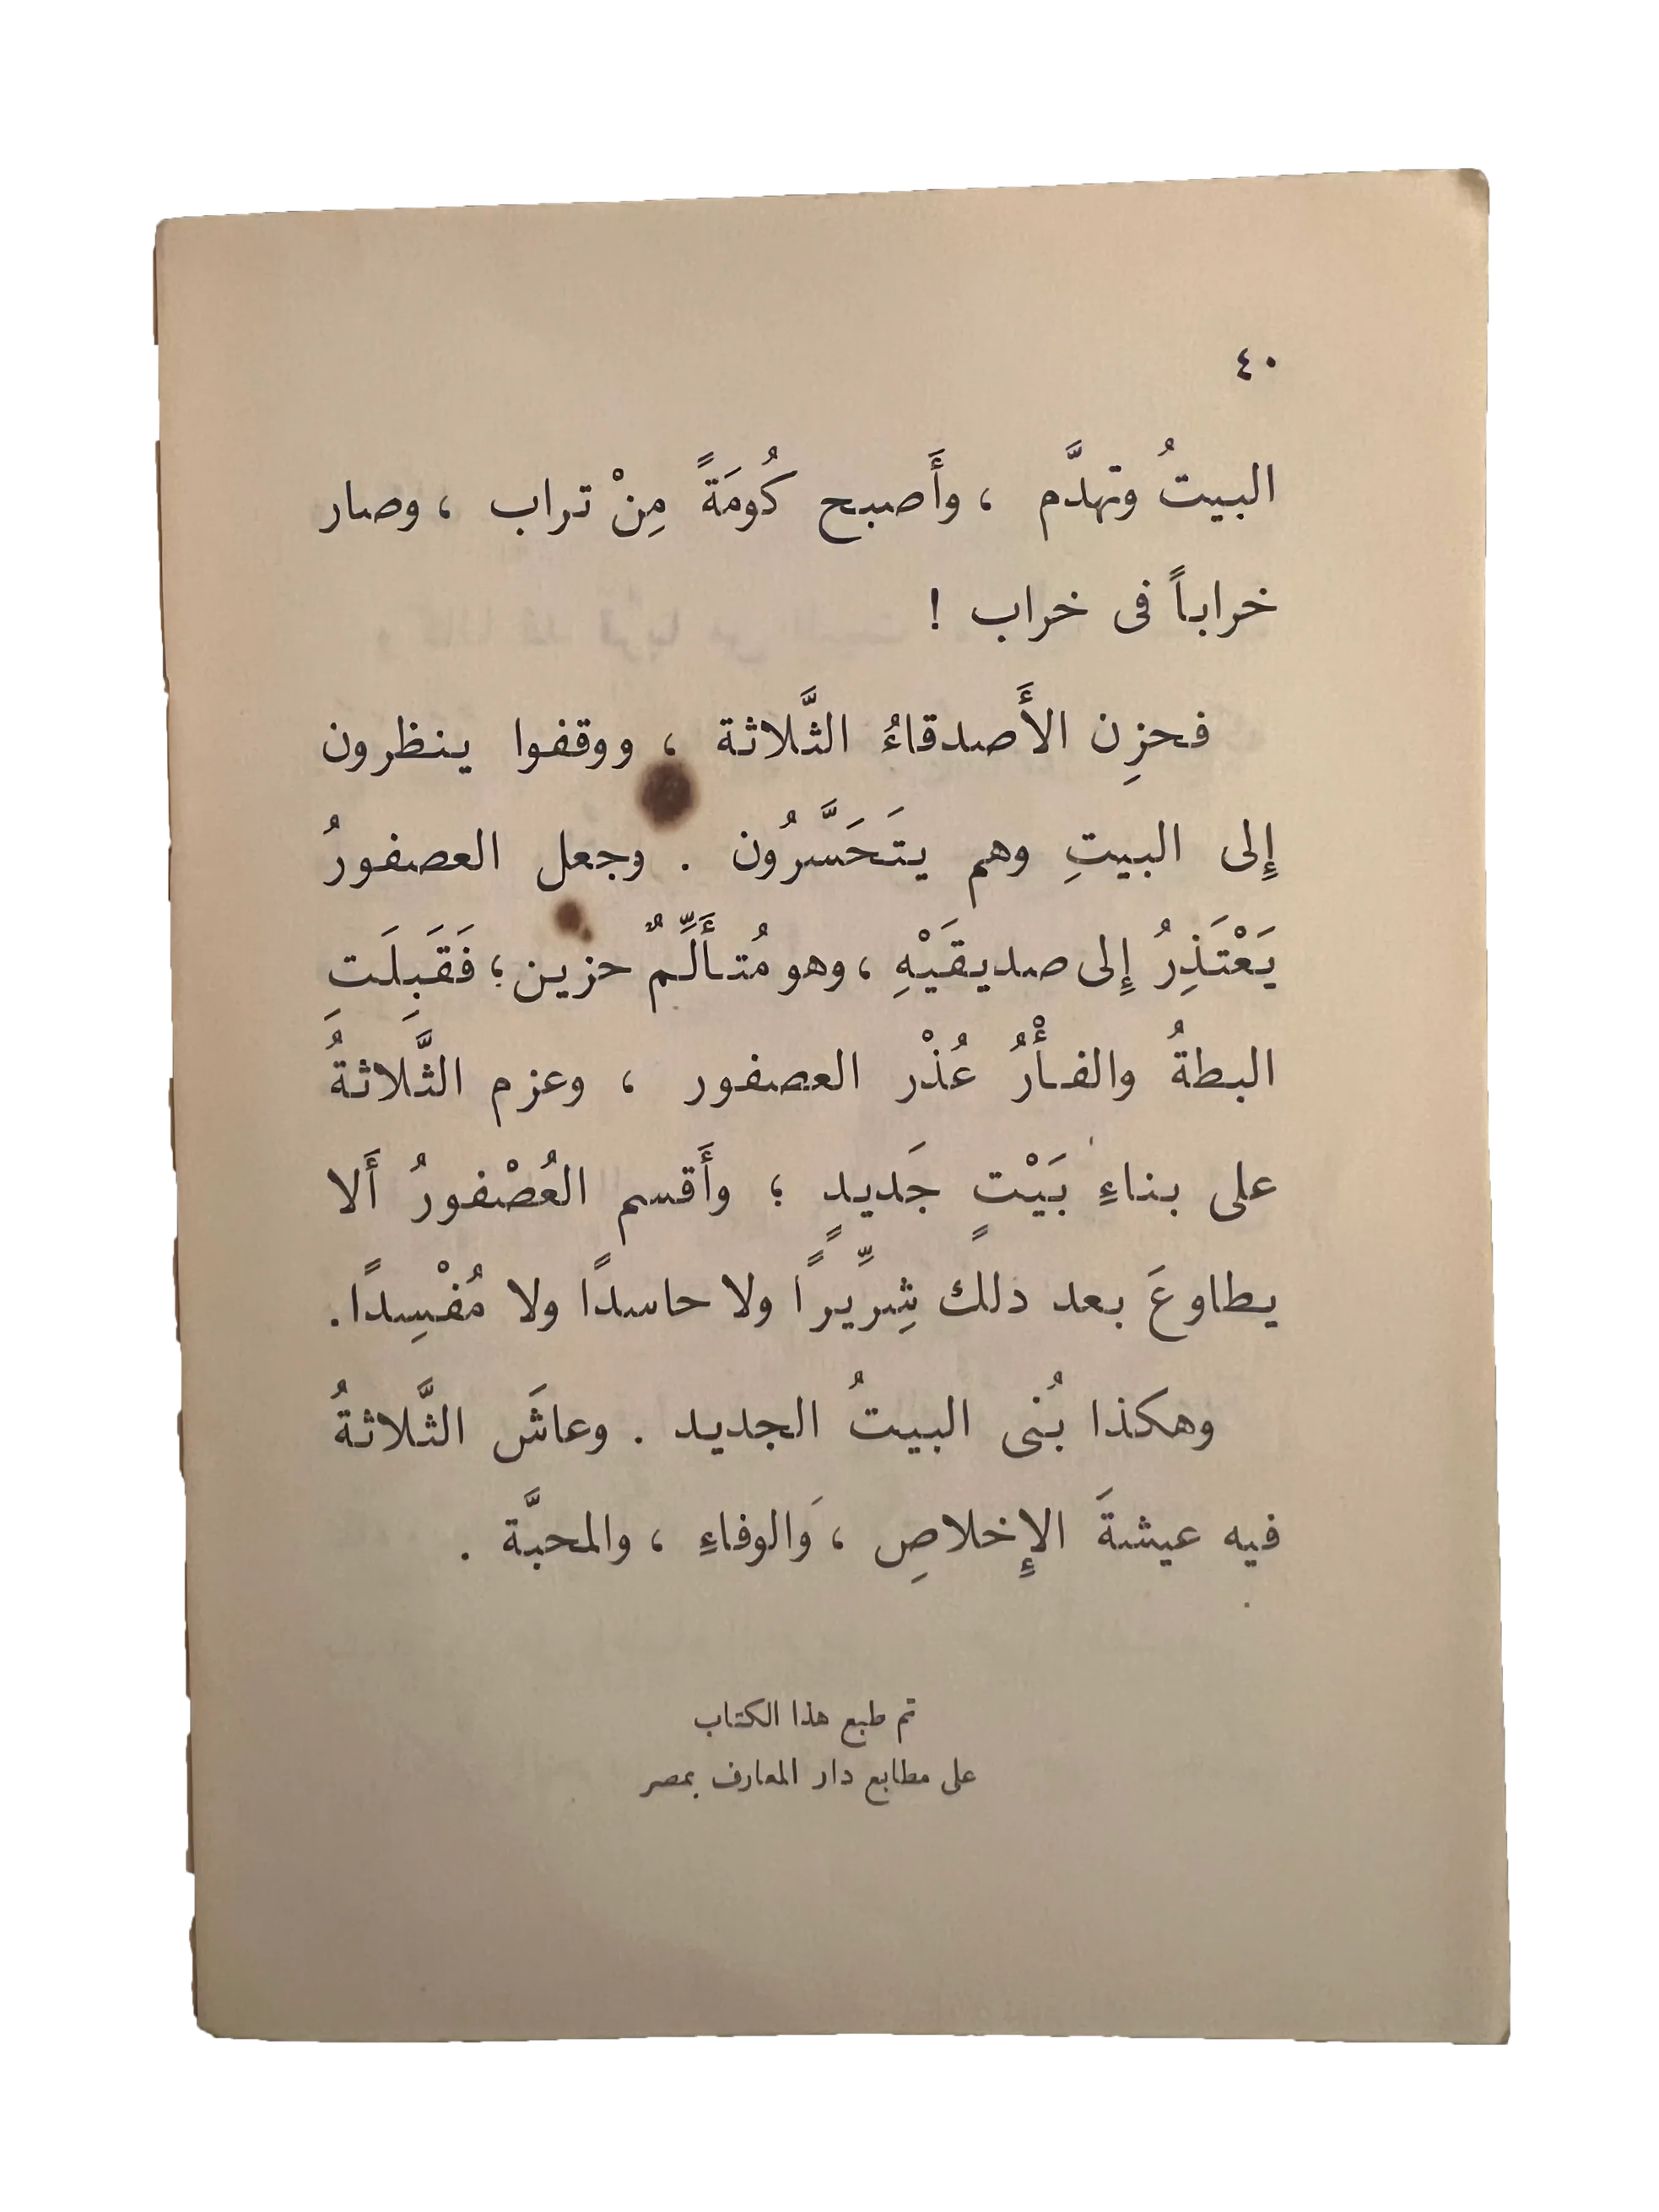 ٤٠
البيتُ وتهدَّم ، وأَصبح كُومَةً مِنْ تراب ، وصار
خراباً فى خراب !
فحزِن الأَصدقاءُ الثَّلاثة ، ووقفوا ينظرون
إِلى البيتِ وهم يتَحَسَّرُون . وجعل العصفورُ
يَعْتَذِرُ إِلى صديقَيْهِ ، وهو مُتأَلِّمٌ حزين ؛ فَقَبِلَتِ
البطةُ والفأْرُ عُذْر العصفور ، وعزم الثَّلاثةُ
على بناءِ بَيْتٍ جَديدٍ ؛ وأَقسم العُصْفورُ أَلا
يطاوعَ بعد ذلك شِرِّيرًا ولا حاسدًا ولا مُفْسِدًا.
وهكذا بُنى البيتُ الجديد . وعاشَ الثَّلاثةُ
فيه عيشةَ الإِخلاصِ ، وَالوفاءِ ، والمحبَّة .
تم طبع هذا الكتاب
على مطابع دار المعارف بمصر